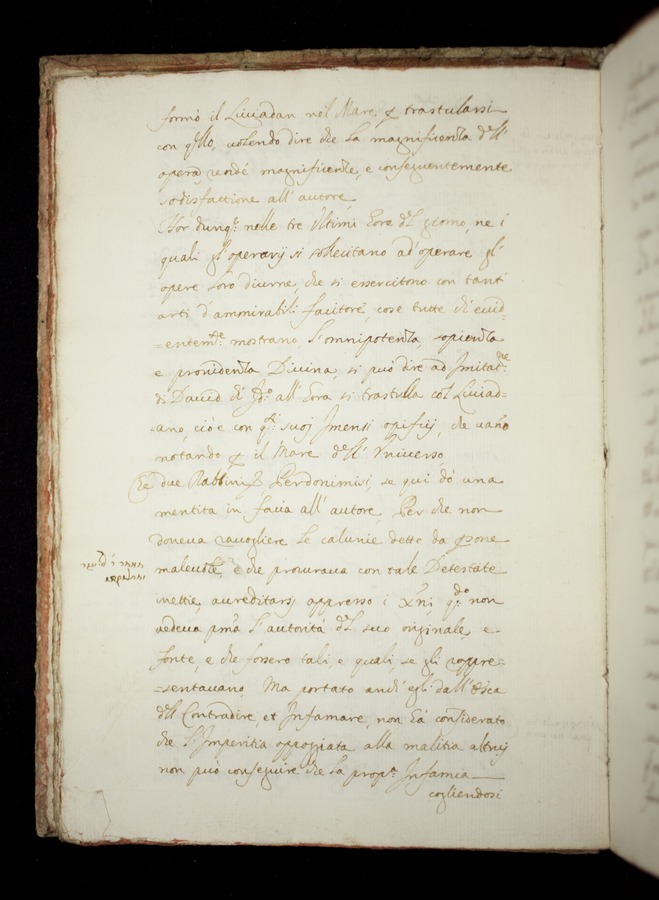 formò il Liuiadan nel Mare p trastularsi
con qllo, uolendo dire che la magnificenza dell'
opera, rende magnificenza, e conseguentemente
sodisfattione all' autore
Hor dunq. nelle tre ultimi hore del giorno, ne i
quali gl' operarij si sollecitano ad' operare gl'
opere loro diurne, che si essercitono con tanti
arti d'amirabili fauitore, cose tutte ch' euid=
=entemte mostrano, l'omnipotenza, sapienza
e prouidenza Diuina, si può dire ad Imitatne
di Dauid ch' Iddo all' hora si trastulla col Liuiad=
=ano, cioè con qli suoj Imensi opificij, che uano
notando p il Mare dell' Vniuerso
Ee due Rabbini & Perdonimisi, se qui dò una
mentita in facia all' autore, Per che non
doueua racogliere le calunie dette da psone
maleuole, e che procuraua con tale Detestate
inettie, accreditarsj appresso i Xni, qdo non
uedeua pma l'autorità del suo originale, e
fonte, e che fossero tali, e quali, se gli rappre=
=sentauano, Ma portato anch' egli dall' Esca
del Contradire, et Infamare, non hà considerato
che l'Imperitia appoggiata alla malitia altruj
non può conseguire che la propa Infamia
cogliendosi